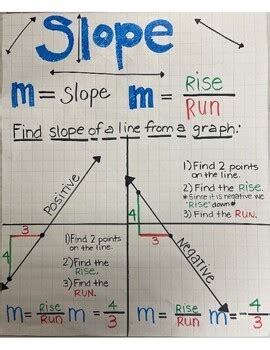 Slope
m = Slope m = Rise/Run
Find slope of a line from a graph:
Positive
3
4
1) Find 2 points
on the line.
2) Find the
Rise.
3) Find the
Run.
m = Rise/Run m = 4/3
1) Find 2 points
on the line.
2) Find the Rise.
*Since it is negative we
"Rise" down*
3) Find the RUN.
Negative
4
3
m = Rise/Run m = -4/3